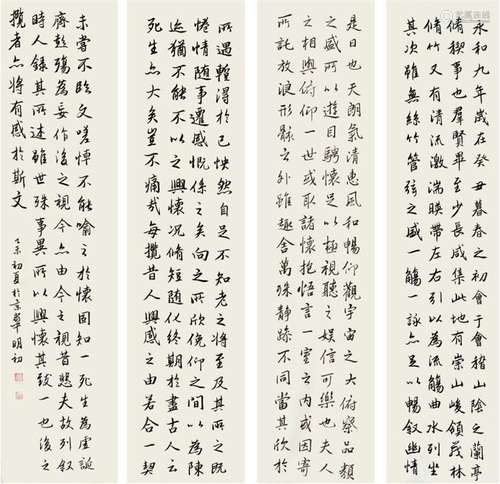 永和九年歲在癸丑暮春之初會于會稽山陰之蘭亭
脩稧事也羣賢畢至少長咸集此地有崇山峻領茂林
脩竹又有清流激湍暎帶左右引以為流觴曲水列坐
其次雖無絲竹管弦之盛一觴一詠亦足以暢叙幽情
是日也天朗氣清惠風和暢仰觀宇宙之大俯察品類
之盛所以遊目騁懷足以極視聽之娛信可樂也夫人
之相與俯仰一世或取諸懷抱悟言一室之內或因寄
所託放浪形骸之外雖趣舍萬殊靜躁不同當其欣於
所遇輕得於己怏然自足不知老之將至及其所之既
惓情隨事遷感慨係之矣向之所欣俛仰之間以為陳
迹猶不能不以之興懷況脩短隨化終期於盡古人云
死生亦大矣豈不痛哉每攬昔人興感之由若合一契
未嘗不臨文嗟悼不能喻之於懷固知一死生為虛誕
齊彭殤為妄作後之視今亦由今之視昔悲夫故列叙
時人錄其所述雖世殊事異所以興懷其致一也後之
攬者亦將有感於斯文
乙未初夏於京華明初